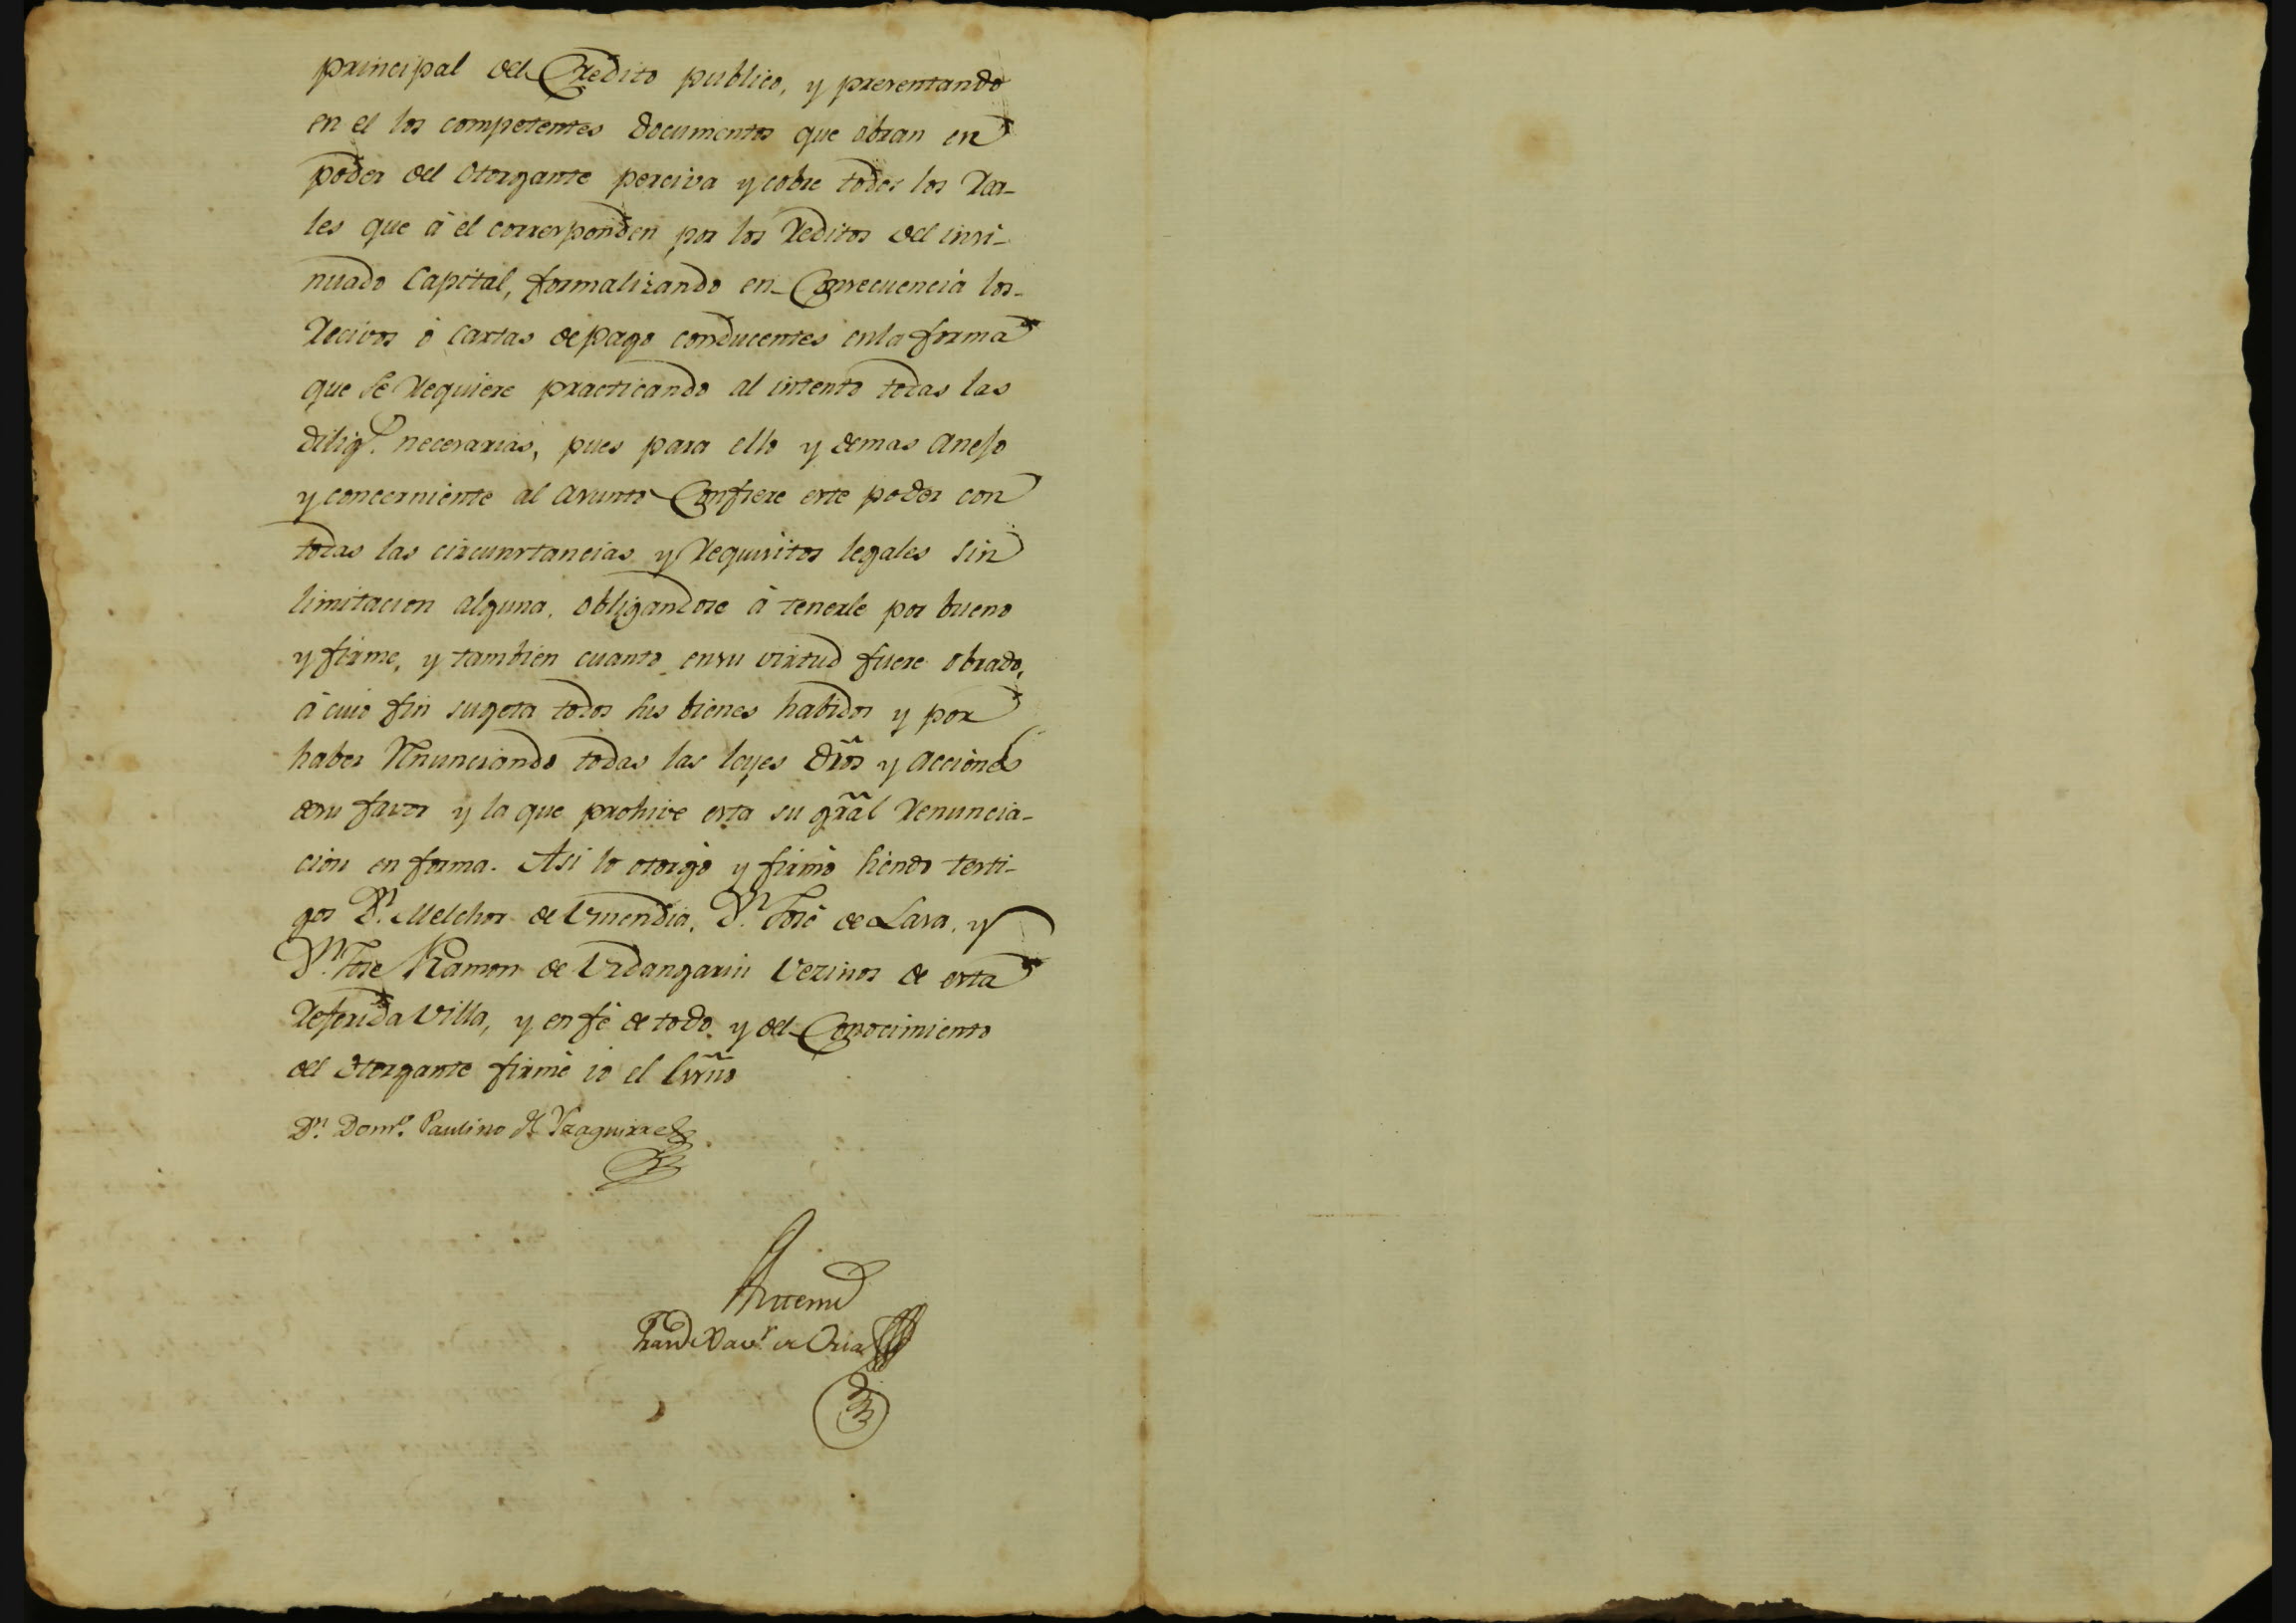 principal del Credito publico, y presentando
en el los competentes documentos que obran en
poder del Otorgante perciva y cobre todos los Rea-
les que á el corresponden por los Reditos del insi-
nuado Capital, formalizando en Consecuencia los
Recivos ó cartas de pago conducentes en la forma
que se Requiere practicando al intento todas las
dilig.s necesarias, pues para ello y demas anejo
y concerniente al asunto Confiere este poder con
todas las circunstancias y Requisitos legales sin
limitacion alguna, obligandose á tenerle por bueno
y firme, y tambien cuanto en su virtud fuere obrado,
á cuio fin sugeta todos sus bienes habidos y por
haber Renunciando todas las leyes dros y acciones
de su favor y la que prohive esta su gral Renuncia-
cion en forma. Asi lo otorgó y firmó siendo testi-
gos D.n Melchor de Umendia, D.n José de Lasa, y
D.n Jose Ramon de Urdangarin Vezinos de esta
Referida Villa, y en fé de todo y del Conocimiento
del Otorgante firmé io el Esno
D.n Dom.o Paulino de Yzaguirre
Antemi
Xav.r de Oria